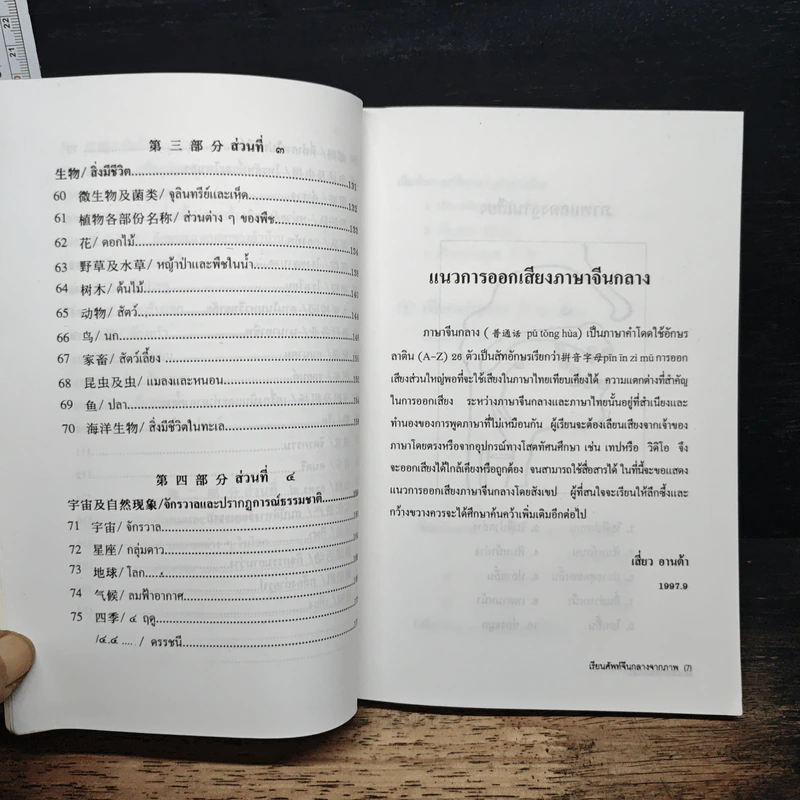 第 三 部 分 ส่วนที่ ๓
生物/ สิ่งมีชีวิต 131
60 微生物及菌类/ จุลินทรีย์และเห็ด 132
61 植物各部份名称/ ส่วนต่าง ๆ ของพืช 133
62 花/ ดอกไม้ 134
63 野草及水草/ หญ้าป่าและพืชในน้ำ
64 树木/ ต้นไม้
65 动物/ สัตว์
66 鸟/ นก
67 家畜/ สัตว์เลี้ยง
68 昆虫及虫/ แมลงและหนอน
69 鱼/ ปลา
70 海洋生物/ สิ่งมีชีวิตในทะเล
第 四 部 分 ส่วนที่ ๔
宇宙及自然现象/จักรวาลและปรากฏการณ์ธรรมชาติ
71 宇宙/ จักรวาล
72 星座/ กลุ่มดาว
73 地球/ โลก
74 气候/ ลมฟ้าอากาศ
75 四季/ ๔ ฤดู
/๔.๔ .... / ดรรชนี
แนวการออกเสียงภาษาจีนกลาง
ภาษาจีนกลาง ( 普通话 pǔ tōng hùa) เป็นภาษาคำโดดใช้อักษร
ลาติน (A-Z) 26 ตัวเป็นสัทอักษรเรียกว่า拼音字母pīn īn zì mǔ การออก
เสียงส่วนใหญ่พอที่จะใช้เสียงในภาษาไทยเทียบเคียงได้ ความแตกต่างที่สำคัญ
ในการออกเสียง ระหว่างภาษาจีนกลางและภาษาไทยนั้นอยู่ที่สำเนียงและ
ทำนองของการพูดภาษาที่ไม่เหมือนกัน ผู้เรียนจะต้องเลียนเสียงจากเจ้าของ
ภาษาโดยตรงหรือจากอุปกรณ์ทางโสตทัศนศึกษา เช่น เทปหรือ วิดิโอ จึง
จะออกเสียงได้ใกล้เคียงหรือถูกต้อง จนสามารถใช้สื่อสารได้ ในที่นี้จะขอแสดง
แนวการออกเสียงภาษาจีนกลางโดยสังเขป ผู้ที่สนใจจะเรียนให้ลึกซึ้งและ
กว้างขวางควรจะได้ศึกษาค้นคว้าเพิ่มเติมอีกต่อไป
เสี่ยว อานต้า
1997.9
เรียนศัพท์จีนกลางจากภาพ (7)